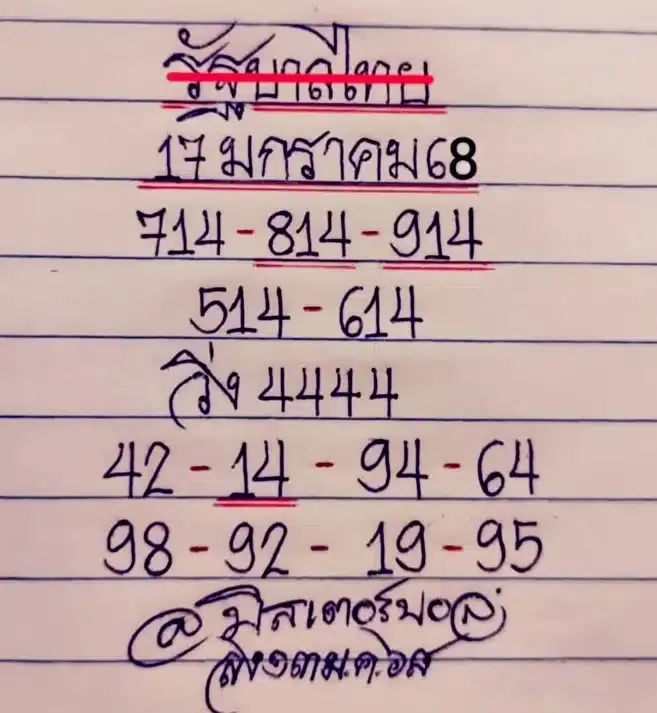 รัฐบาลไทย
17 มกราคม 68
714 - 814 - 914
514 - 614
วิ่ง 4444
42 - 14 - 94 - 64
98 - 92 - 19 - 95
@มิสเตอร์บอล